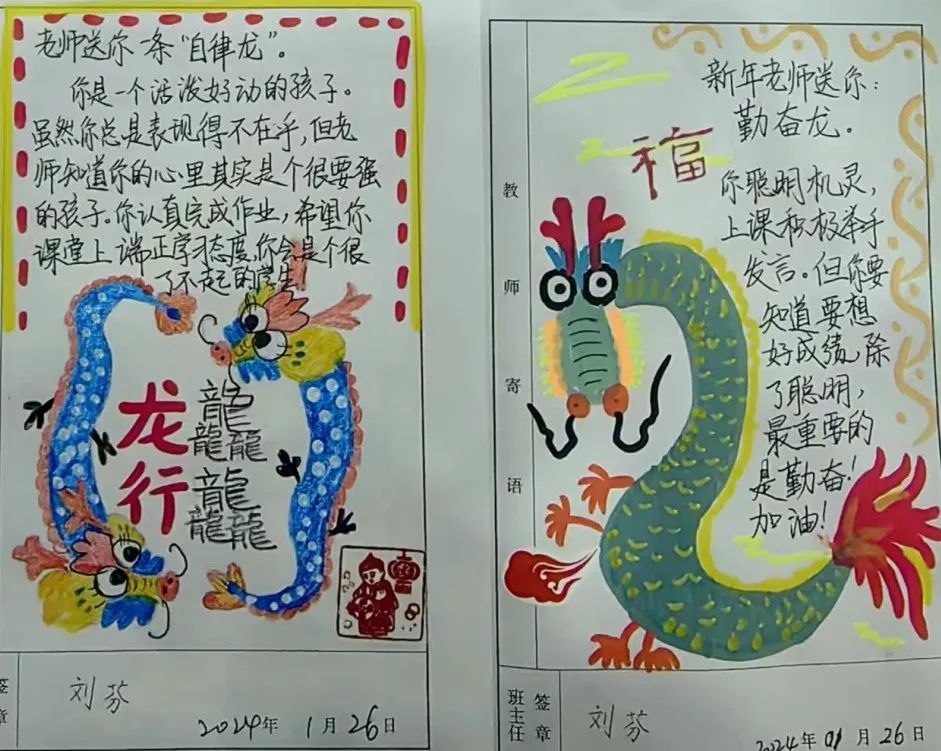 老师送你一条“自律龙”。
你是一个活泼好动的孩子。
虽然你总是表现得不在乎,但老
师知道你的心里其实是个很要强
的孩子。你认真完成作业,希望你
课堂上端正学习态度,你会是个很
了不起的学生!
龙
行
龘
龘
签
章
刘芬
2024年 1月26日
新年老师送你:
勤奋龙。
福
你聪明机灵,
上课积极举手
发言。但你要
知道要想
好成绩,除
了聪明,
最重要的
是勤奋!
加油!
教
师
寄
语
班主任
签章
刘芬
2024年01月26日